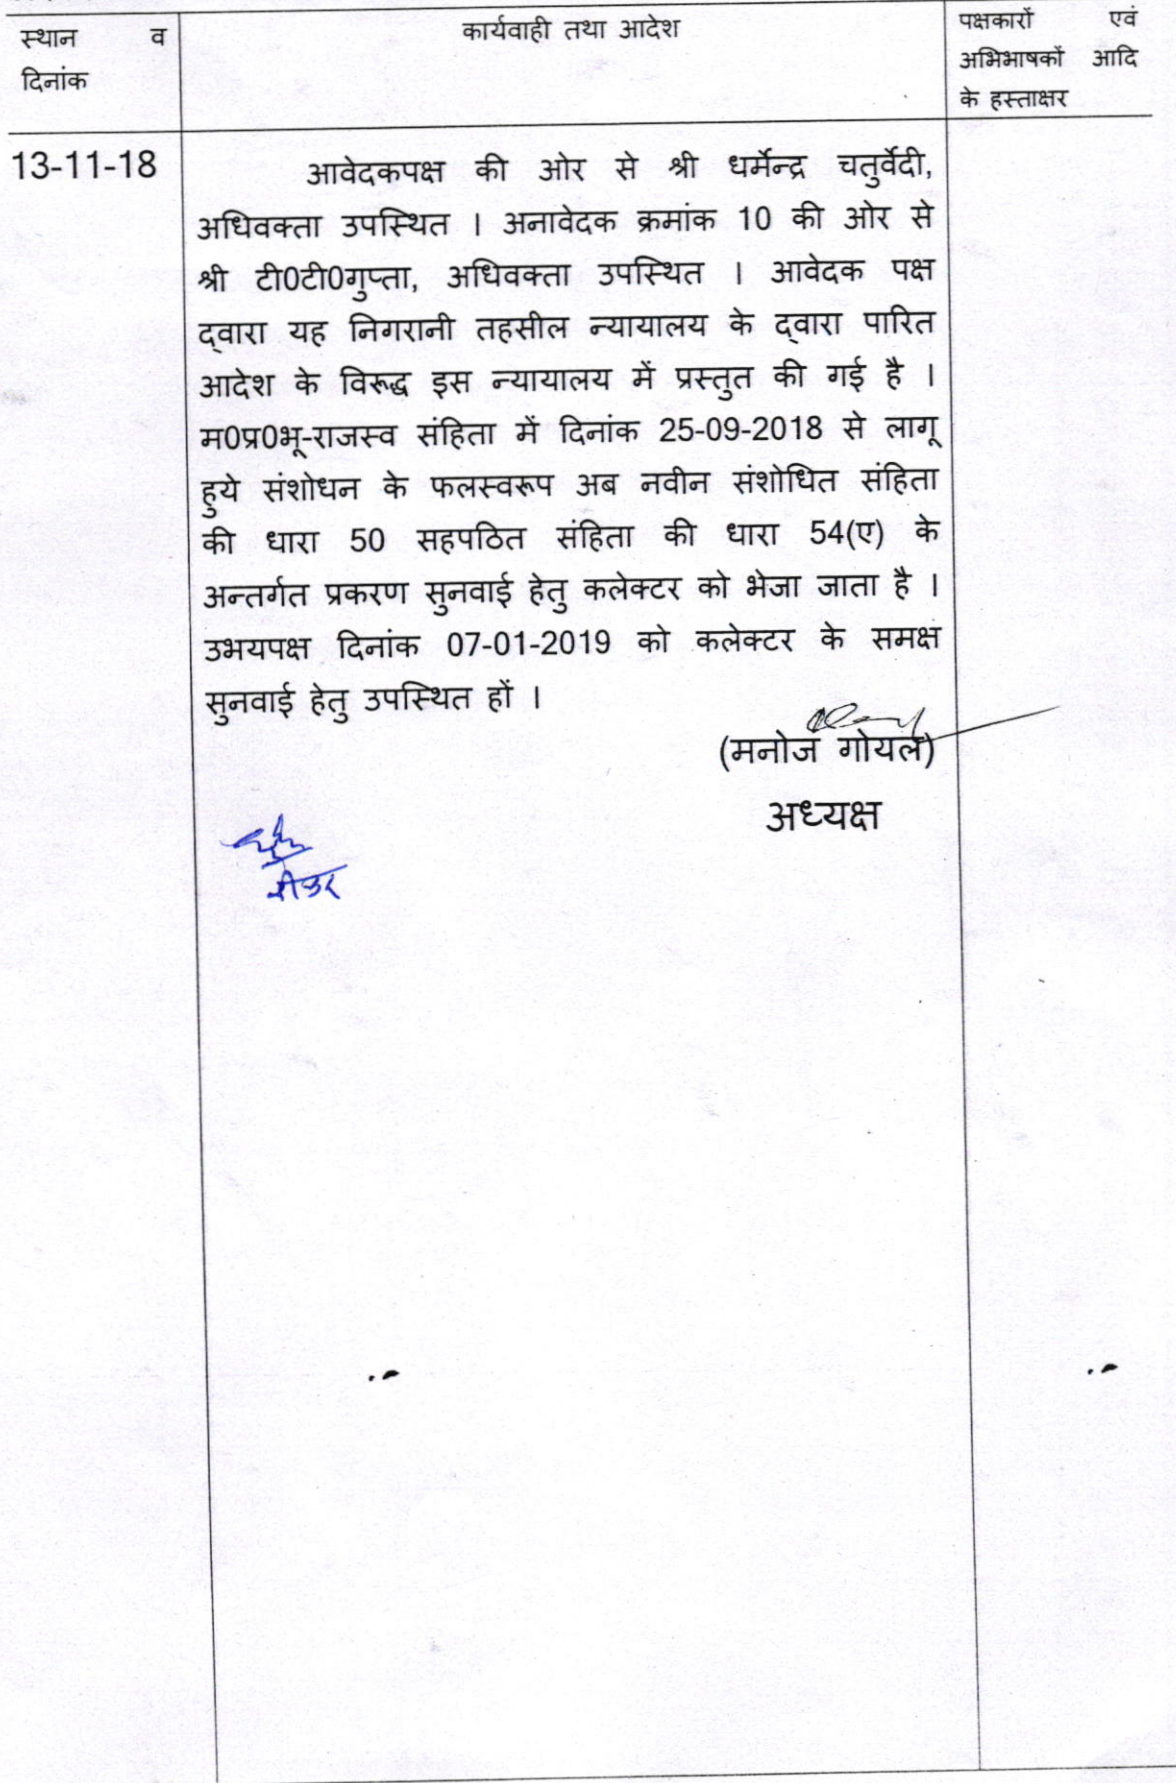 स्थान व
दिनांक
कार्यवाही तथा आदेश
पक्षकारों एवं
अभिभाषकों आदि
के हस्ताक्षर
13-11-18
आवेदकपक्ष की ओर से श्री धर्मेन्द्र चतुर्वेदी,
अधिवक्ता उपस्थित । अनावेदक क्रमांक 10 की ओर से
श्री टी0टी0गुप्ता, अधिवक्ता उपस्थित । आवेदक पक्ष
द्वारा यह निगरानी तहसील न्यायालय के द्वारा पारित
आदेश के विरूद्ध इस न्यायालय में प्रस्तुत की गई है ।
म0प्र0भू-राजस्व संहिता में दिनांक 25-09-2018 से लागू
हुये संशोधन के फलस्वरूप अब नवीन संशोधित संहिता
की धारा 50 सहपठित संहिता की धारा 54(ए) के
अन्तर्गत प्रकरण सुनवाई हेतु कलेक्टर को भेजा जाता है ।
उभयपक्ष दिनांक 07-01-2019 को कलेक्टर के समक्ष
सुनवाई हेतु उपस्थित हों ।
(मनोज गोयल)
अध्यक्ष